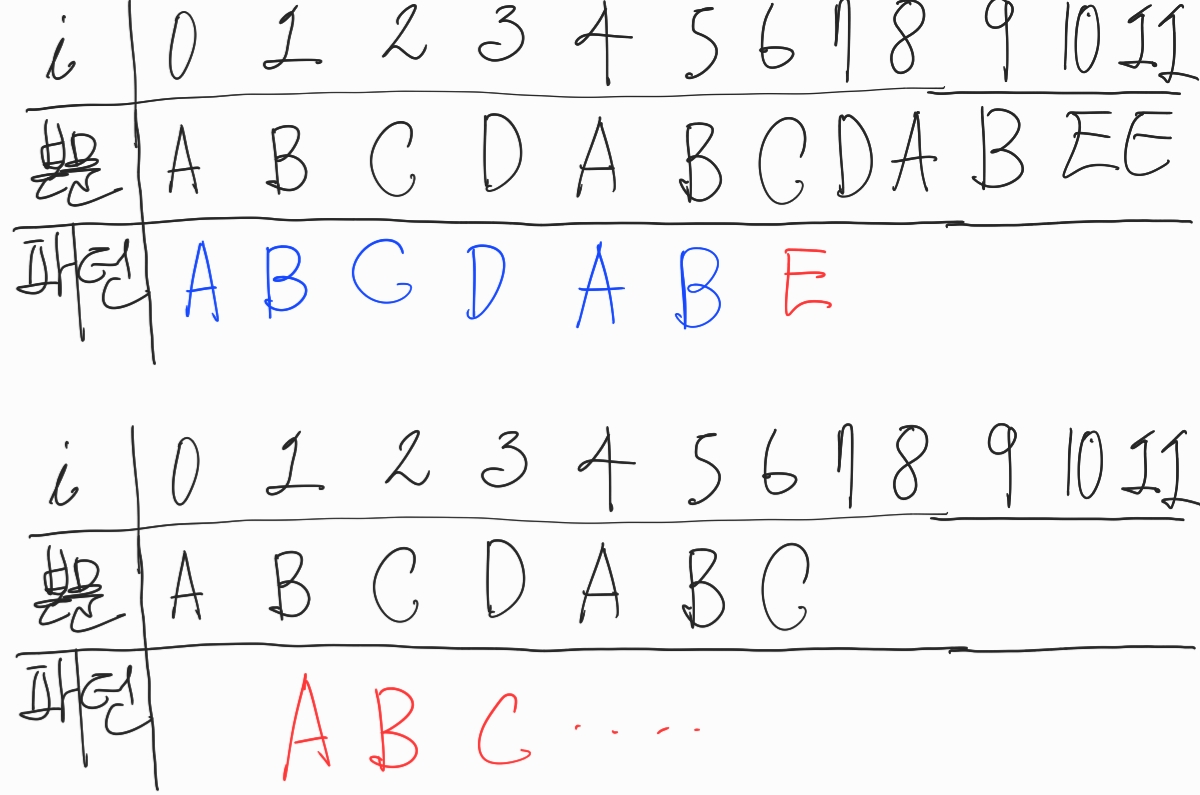 i 0 1 2 3 4 5 6 7 8 9 10 11
본문 A B C D A B C D A B E E
패턴 A B C D A B E
i 0 1 2 3 4 5 6 7 8 9 10 11
본문 A B C D A B C
패턴 A B C .....